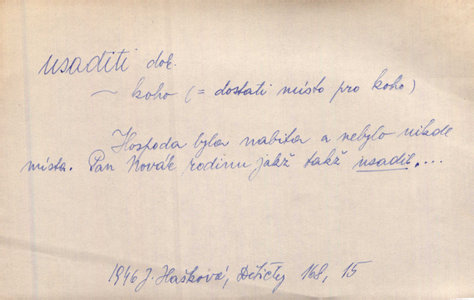 usaditi dok.
~ koho (= dostati místo pro koho)
Hospoda byla nabita a nebylo nikde
místa. Pan Novák rodinu jakž takž usadil,...
1946 J. Hašková, 168, 15